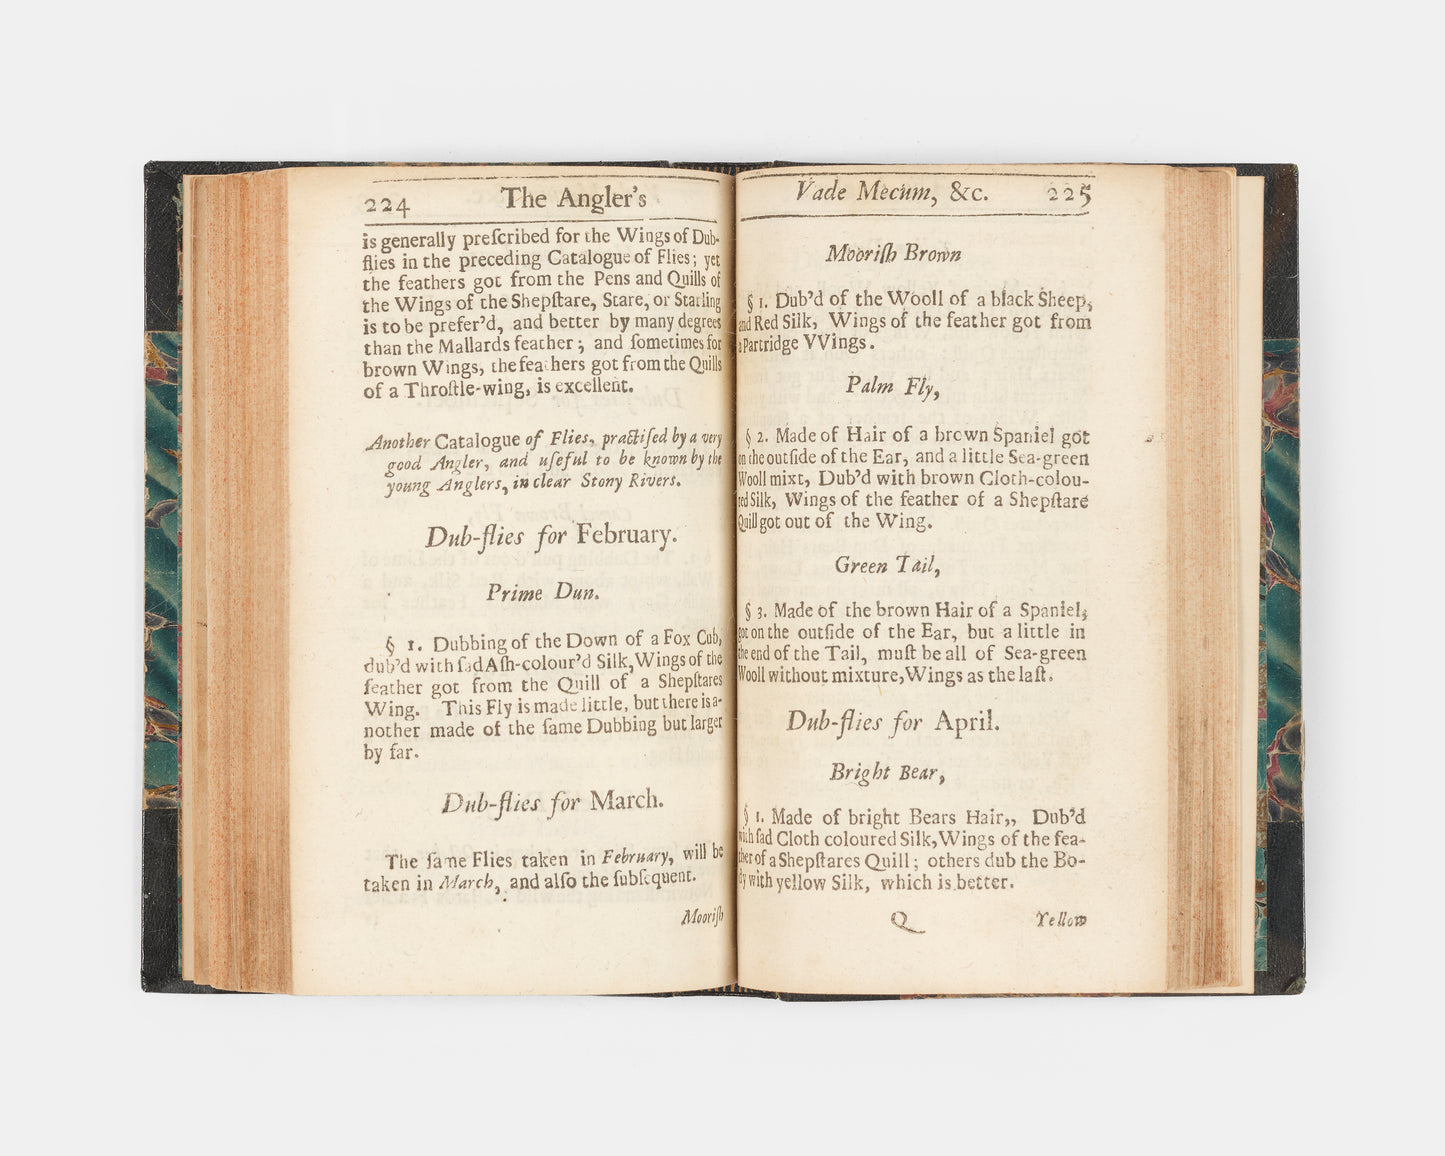 224 The Angler's
is generally preſcribed for the Wings of Dub-
flies in the preceding Catalogue of Flies; yet
the feathers got from the Pens and Quills of
the Wings of the Shepſtare, Stare, or Starling
is to be prefer'd, and better by many degrees
than the Mallards feather; and ſometimes for
brown Wings, the feathers got from the Quills
of a Throſtle-wing, is excellent.
Another Catalogue of Flies, practiſed by a very
good Angler, and uſeful to be known by the
young Anglers, in clear Stony Rivers.
Dub-flies for February.
Prime Dun.
§ 1. Dubbing of the Down of a Fox Cub,
dub'd with ſad Aſh-colour'd Silk, Wings of the
feather got from the Quill of a Shepſtares
Wing. This Fly is made little, but there is a-
nother made of the ſame Dubbing but larger
by far.
Dub-flies for March.
The ſame Flies taken in February, will be
taken in March, and alſo the ſubſequent.
Mooriſh
Vade Mecum, &c. 225
Mooriſh Brown
§ 1. Dub'd of the Wooll of a black Sheep,
and Red Silk, Wings of the feather got from
a Partridge VVings.
Palm Fly,
§ 2. Made of Hair of a brown Spaniel got
on the outſide of the Ear, and a little Sea-green
Wooll mixt, Dub'd with brown Cloth-colou-
red Silk, Wings of the feather of a Shepſtare
Quill got out of the Wing.
Green Tail,
§ 3. Made of the brown Hair of a Spaniel,
got on the outſide of the Ear, but a little in
the end of the Tail, muſt be all of Sea-green
Wooll without mixture, Wings as the laſt.
Dub-flies for April.
Bright Bear,
§ 1. Made of bright Bears Hair,, Dub'd
with ſad Cloth coloured Silk, Wings of the fea-
ther of a Shepſtares Quill; others dub the Bo-
dy with yellow Silk, which is better.
Q Yellow